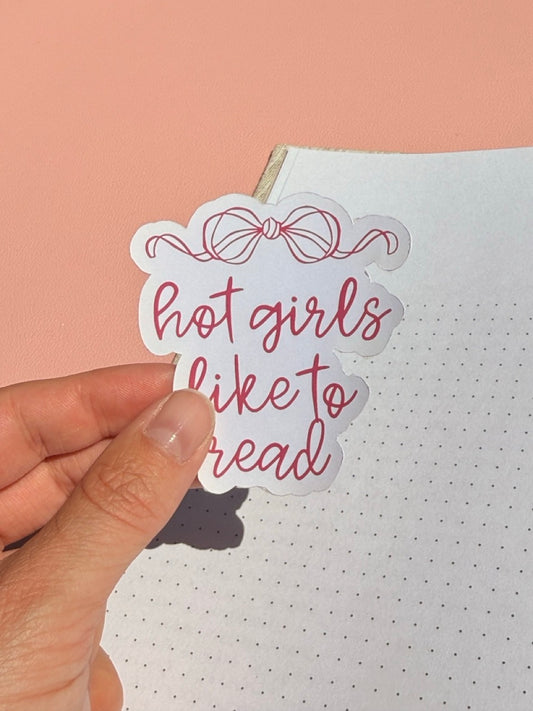 hot girls
like to
read